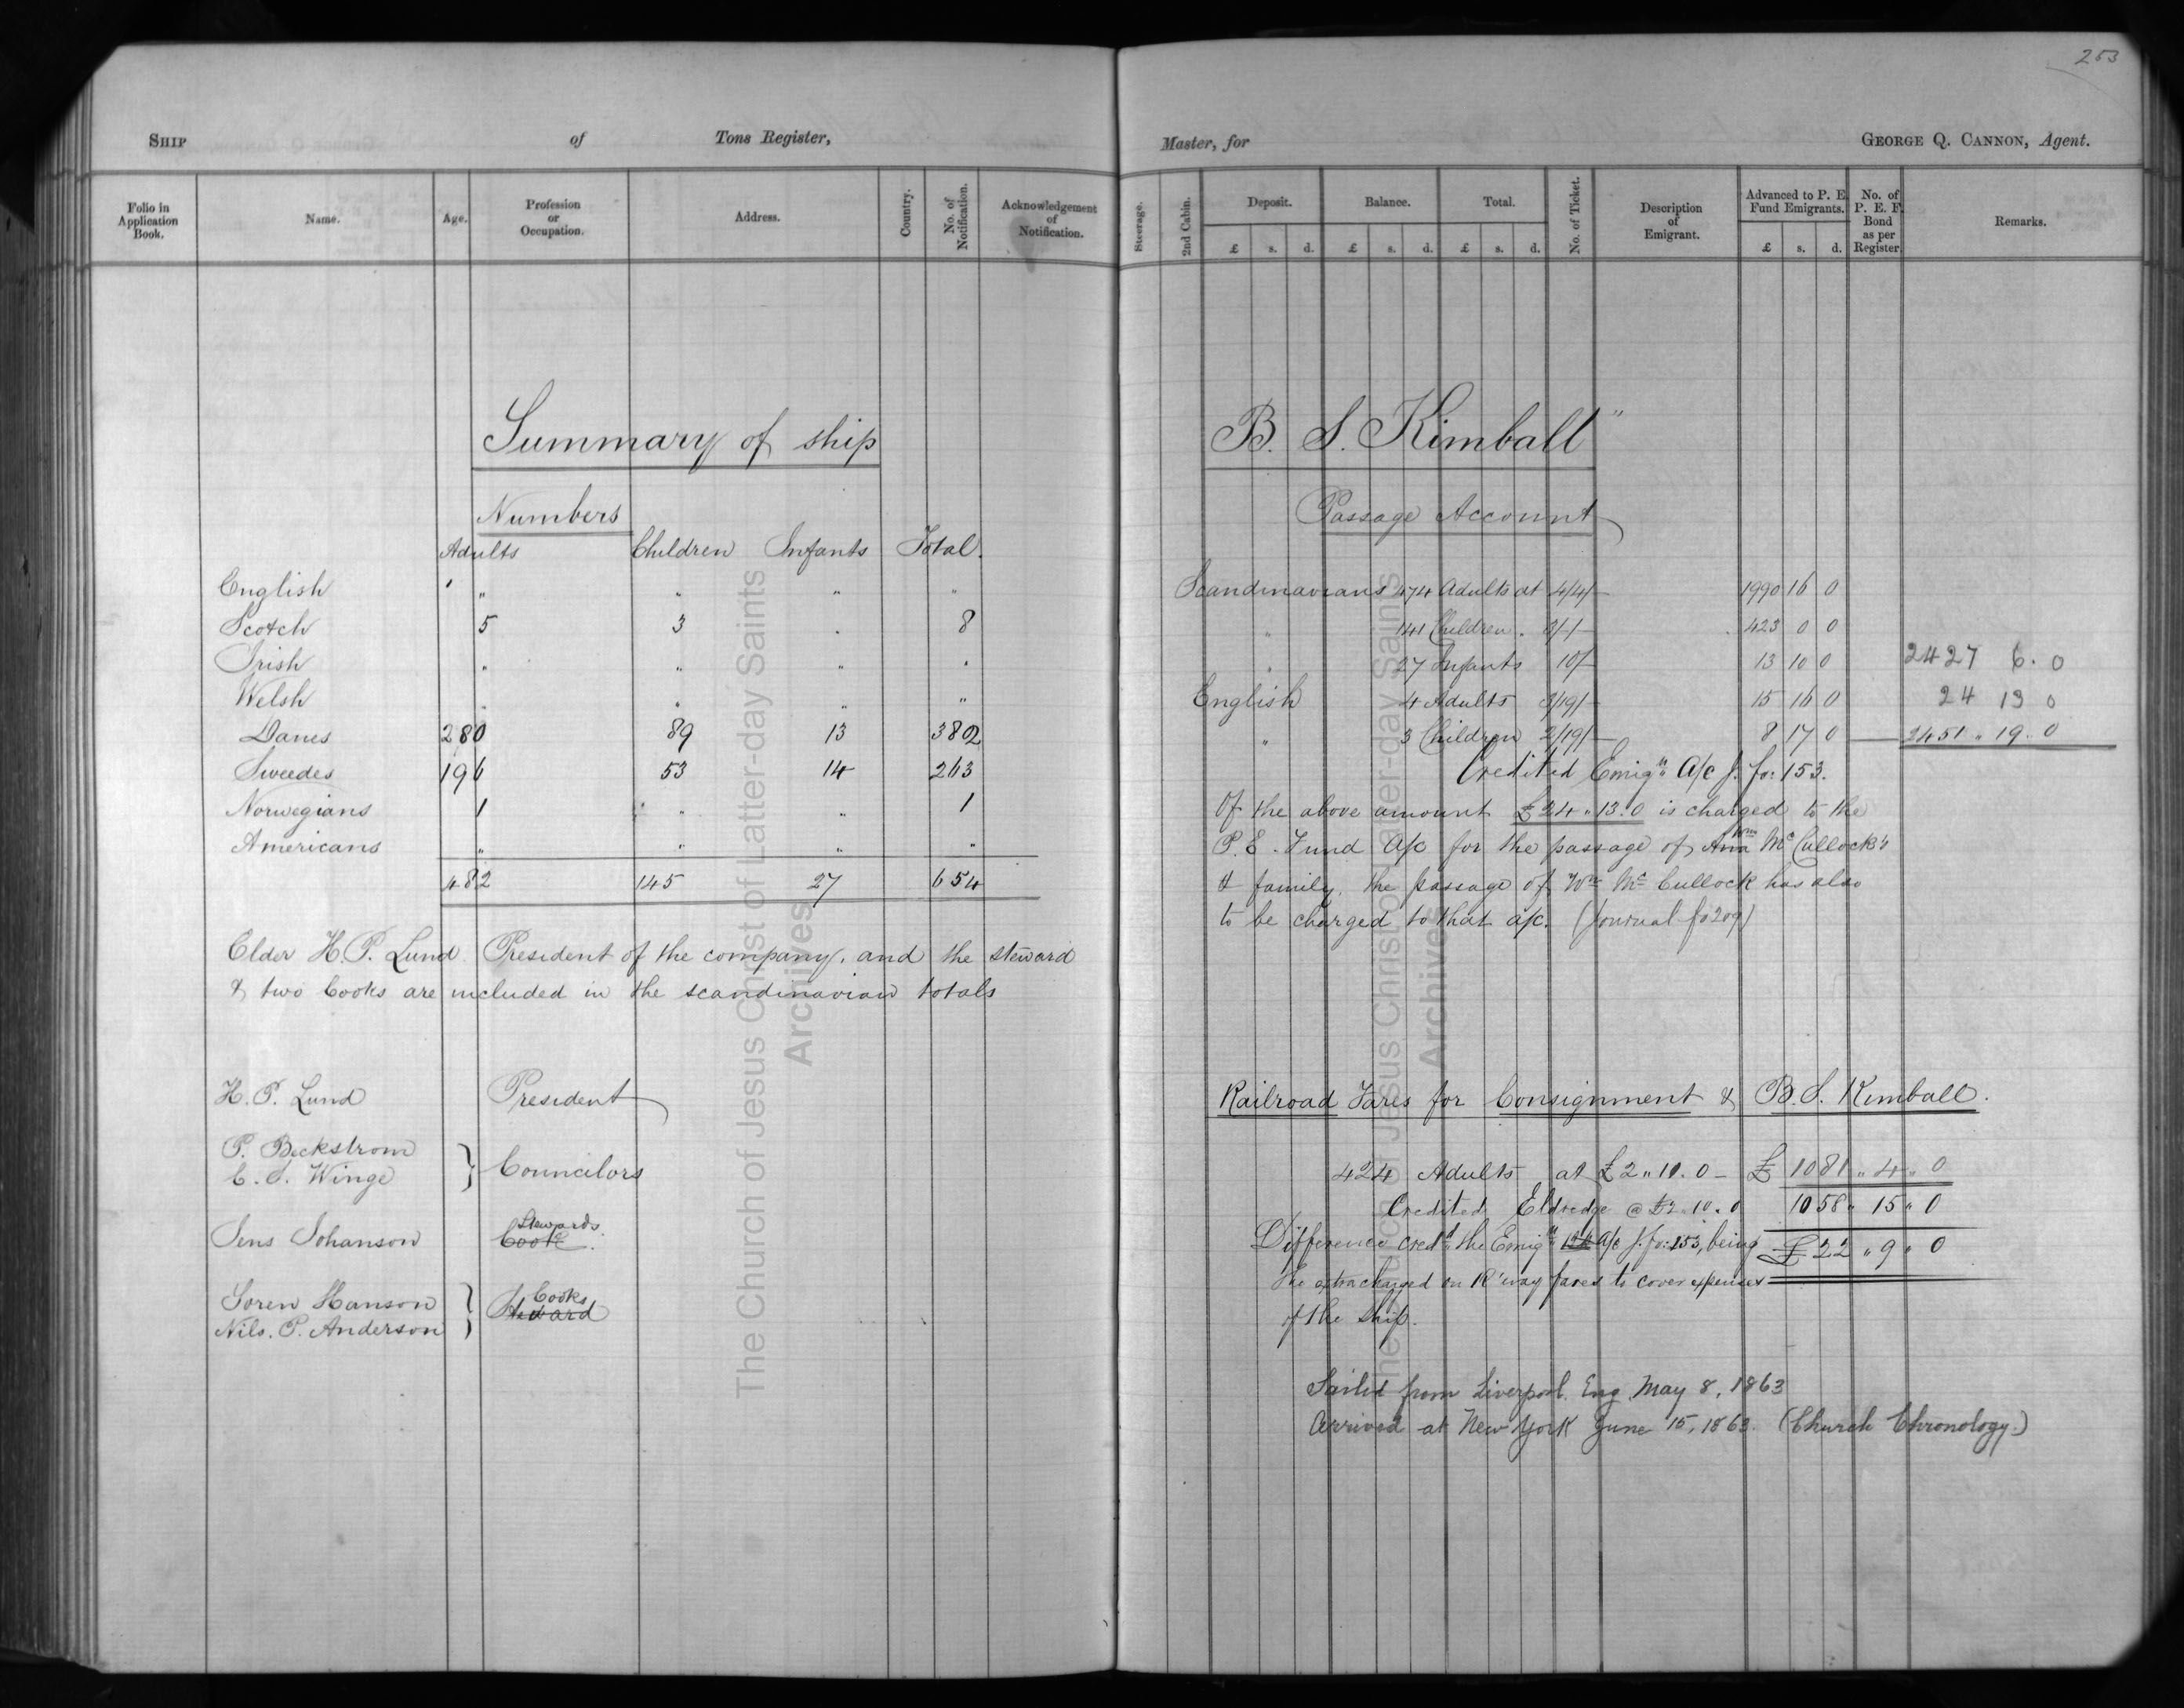 253
SHIP of Tons Register,
Folio in Application Book. Name. Age. Profession or Occupation. Address. Country. No. of Notification. Acknowledgement of Notification.
Summary of ship
Numbers
Adults Children Infants Total.
English " " " "
Scotch 5 3 . 8
Irish " " " "
Welsh " " " "
Danes 280 89 13 382
Sweedes 196 53 14 263
Norwegians 1 " " 1
Americans " " " "
482 145 27 654
Elder H. P. Lund President of the company, and the steward
& two Cooks are included in the scandinavian totals
H. P. Lund President
P. Beckstrom
C. S. Winge } Councilors
Stewards
Jens Johanson Cook.
Cooks
Soren Hanson } Steward
Nils. P. Anderson
Master, for GEORGE Q. CANNON, Agent.
Steerage. 2nd Cabin. Deposit. £ s. d. Balance. £ s. d. Total. £ s. d. No. of Ticket. Description of Emigrant. Advanced to P. E. Fund Emigrants. £ s. d. No. of P. E. F. Bond as per Register. Remarks.
B. S. Kimball"
Passage Account
Scandinavians 474 Adults at 4/4/- 1990 16 0
" 141 Children " 3/-/- 423 0 0
" 27 Infants 10/- 13 10 0 2427 6. 0
English 4 Adults 3/19/- 15 16 0 24 13 0
" 3 Children 2/19/- 8 17 0 2451 " 19 " 0
Credited Emign. A/c J. fo: 153.
Of the above amount £24 " 13. 0 is charged to the
P. E. Fund A/c for the passage of Ann Wm McCullock's
& family, the passage of Wm McCullock has also
to be charged to that a/c. (Journal fo 209)
Railroad Fares for Consignment & B. S. Kimball.
424 Adults at £2 " 11. 0 - £ 1081 " 4 " 0
Credited Eldredge @ £2 " 10. 0 1058 " 15 " 0
Difference credd. the Emign. A/c J. fo: 153, being £ 22 " 9 " 0
the extra charged on R'way fares to cover expenses
of the ship.
Sailed from Liverpool. Eng May 8, 1863
Arrived at New York June 15, 1863. (Church Chronology.)
The Church of Jesus Christ of Latter-day Saints
Archives
The Church of Jesus Christ of Latter-day Saints
Archives